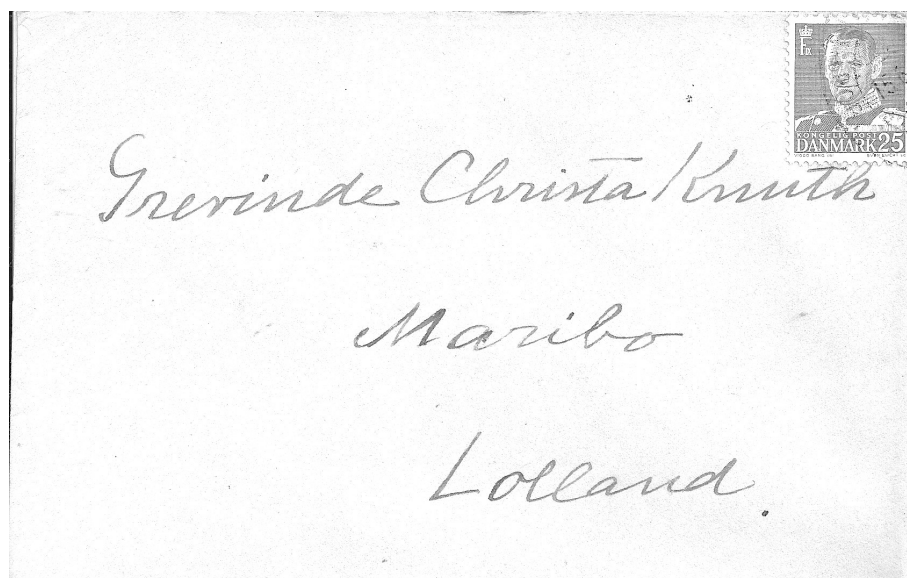 KONGELIG POST
DANMARK 25
Grevinde Christa Knuth
Maribo
Lolland.